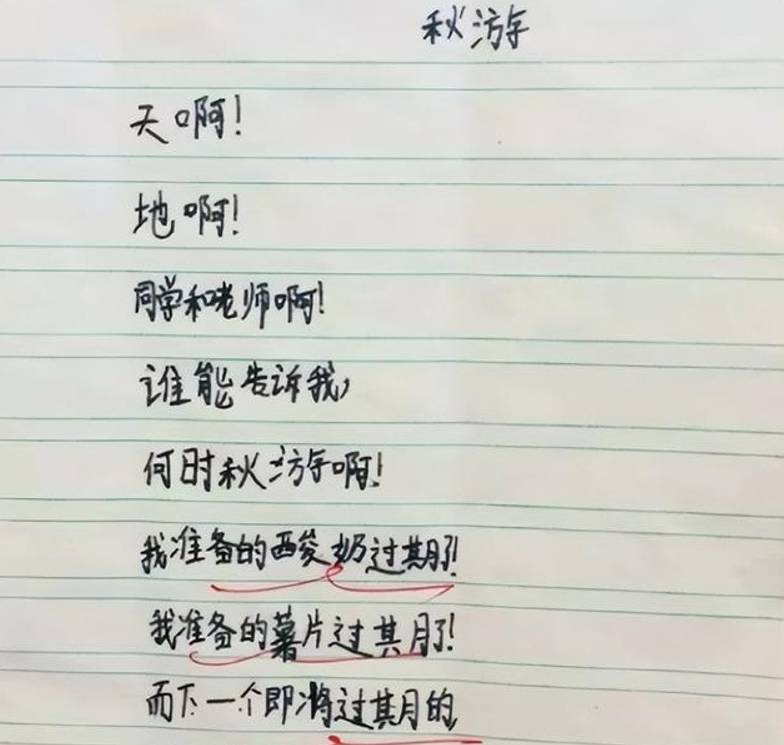 秋游
天啊!
地啊!
同学和老师啊!
谁能告诉我,
何时秋游啊!
我准备的酸奶过期了!
我准备的薯片过期了!
而下一个即将过期的,